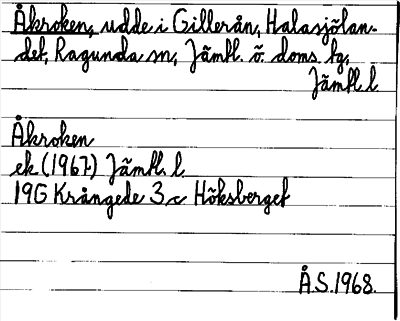 Åkroken, udde i Gillerån, Halasjölan-
det, Ragunda sn, Jämtl. ö. doms. tg,
Jämtl l
Åkroken
ek (1967) Jämtl. l.
19G Krångede 3 c Höksberget
Å.S. 1968.